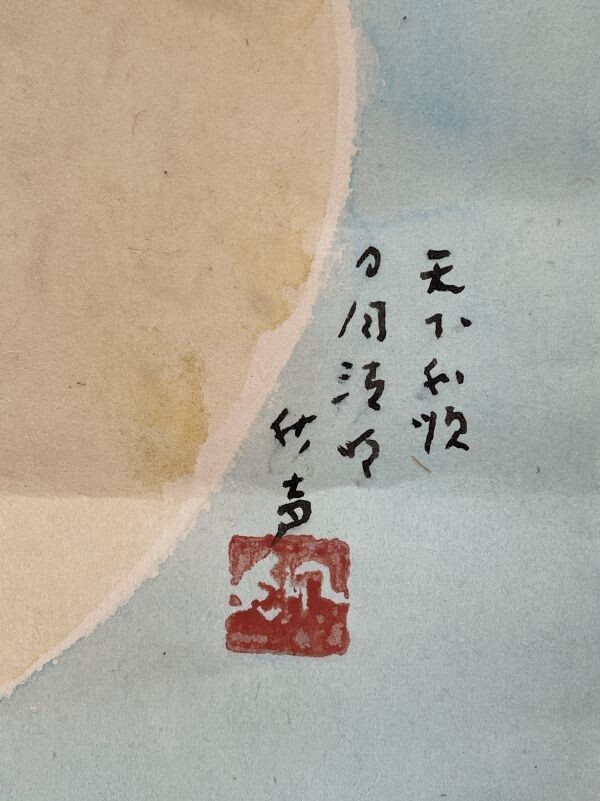 天下和順
日月清明
秋声